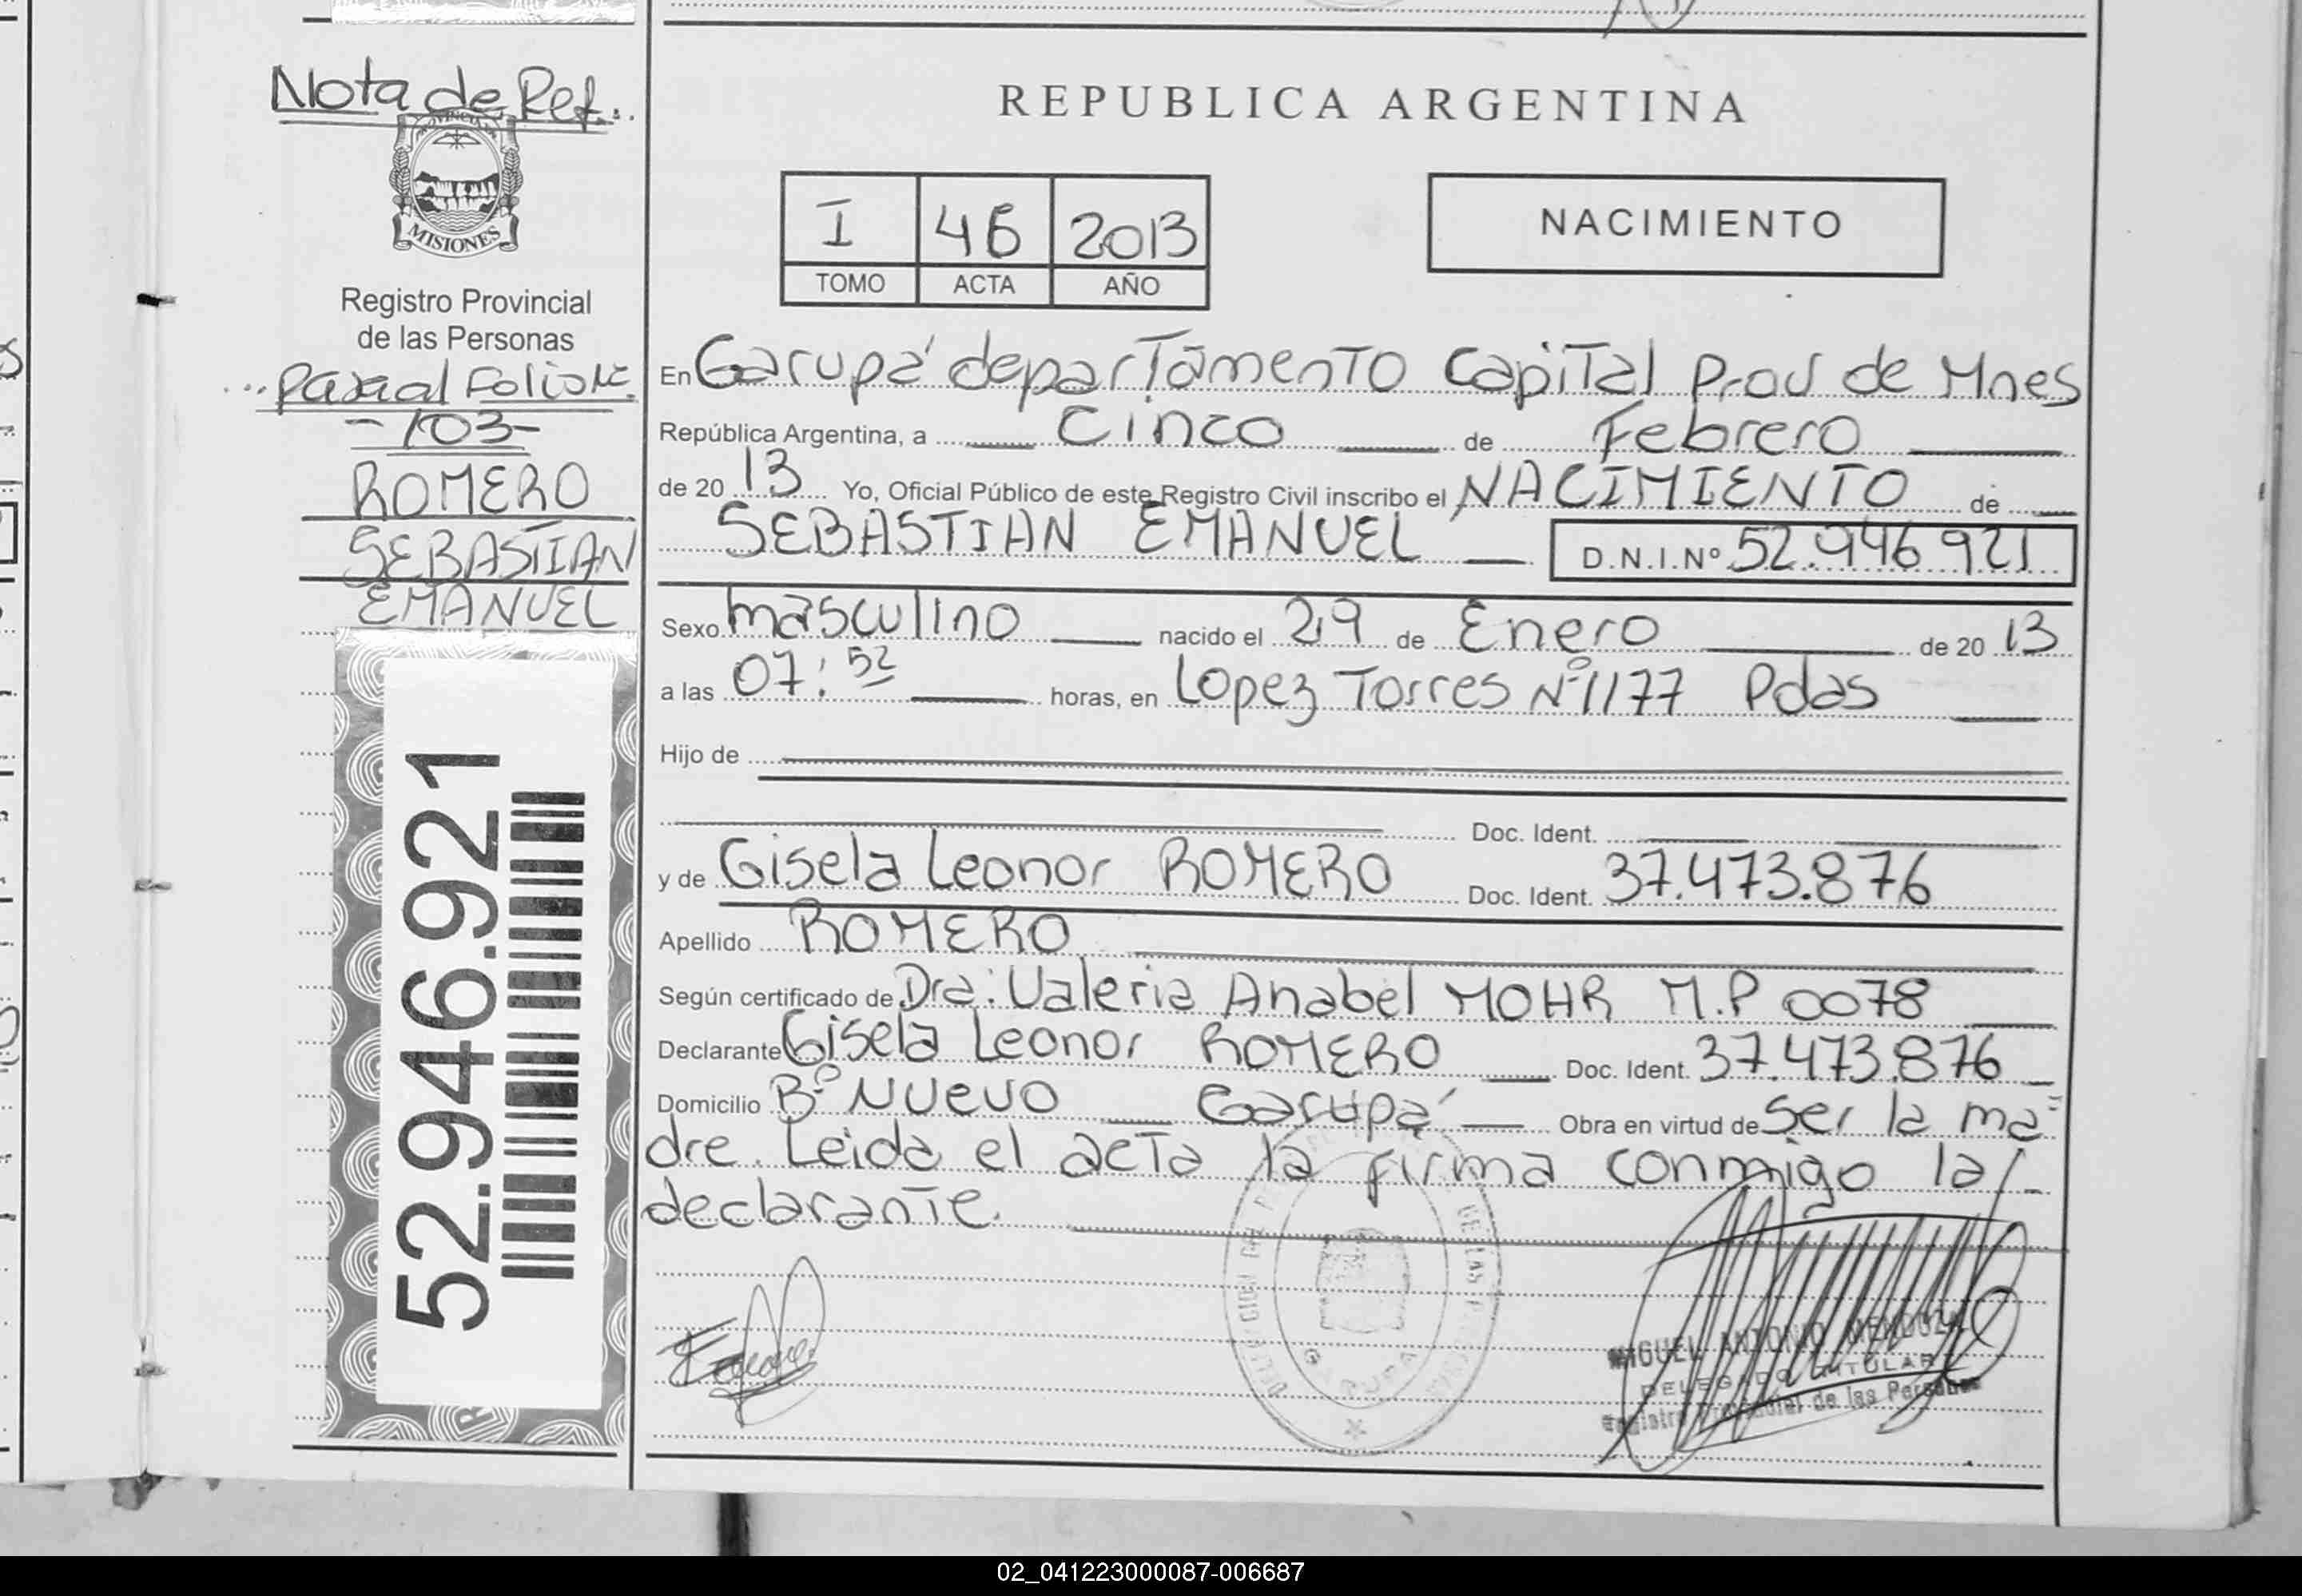 Nota de Ref.
PROVINCIA DE
MISIONES
Registro Provincial
de las Personas
... Pasa al Folio Nº
- 103 -
ROMERO
SEBASTIAN
EMANUEL
52.946.921
REPUBLICA ARGENTINA
I 46 2013
TOMO ACTA AÑO
NACIMIENTO
En Garupá departamento Capital Prov de Mnes
República Argentina, a Cinco de Febrero
de 20 13 Yo, Oficial Público de este Registro Civil inscribo el NACIMIENTO de
SEBASTIAN EMANUEL D.N.I.Nº 52.946 921
Sexo masculino nacido el 29 de Enero de 20 13
a las 07:52 horas, en Lopez Torres Nº 1177 Pdas
Hijo de
Doc. Ident.
y de Gisela Leonor ROMERO Doc. Ident. 37.473.876
Apellido ROMERO
Según certificado de Dra: Valeria Anabel MOHR M.P 0078
Declarante Gisela Leonor ROMERO Doc. Ident. 37.473.876
Domicilio Bº Nuevo Garupá Obra en virtud de Ser la ma=
dre. Leida el acta la firma conmigo la
declarante.
GARUPA
MIGUEL ANTONIO MENDOZA
DELEGADO TITULAR
Registro Provincial de las Personas
02_041223000087-006687